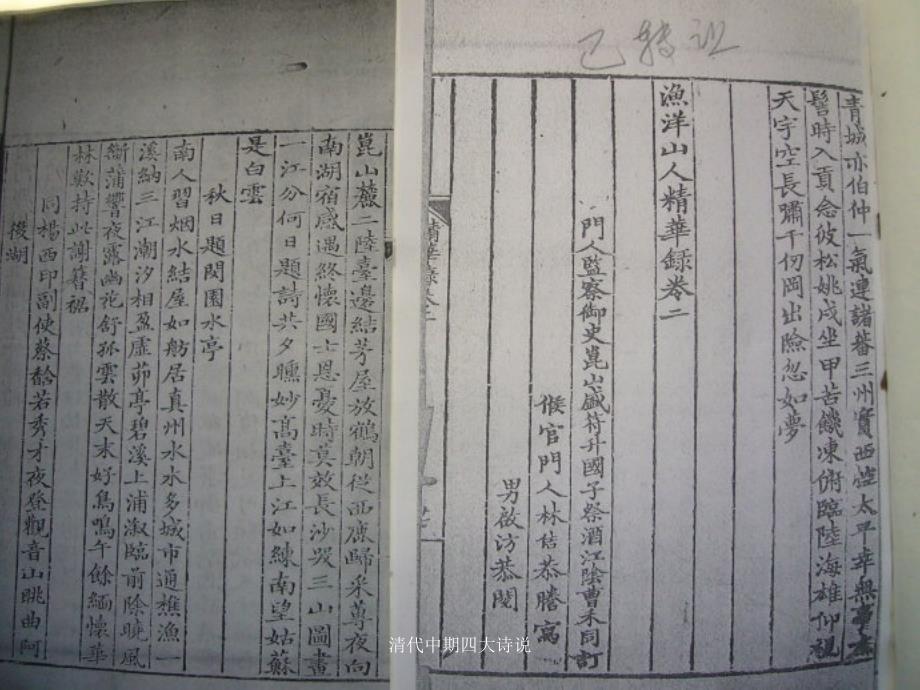 已转让
青城亦伯仲一氣連諸蕃三州實西
太平幸無事
髻時入貢念彼松姚戍坐甲苦饑凍俯臨陸海雄仰視
天宇空長嘯千仞岡出險忽如夢
漁洋山人精華録卷二
門人監察御史崑山盛符升國子祭酒江陰曹禾同訂
候官門人林佶恭謄寫
男啟汸恭閱
精華錄卷二
崑山麓二陸臺邊結芳屋放鶴朝從西鹿歸采蓴夜向
南湖宿感遇終懷國士恩憂時莫效長沙哭三山圖畫
一江分何日題詩共夕曛妙高臺上江如練南望姑蘇
是白雲
秋日題閔園水亭
南人習烟水結屋如舫居真州水水多城市通樵漁一
溪納三江潮汐相盈虛茆亭碧溪上浦溆臨前除曉風
衝蒲響夜露幽花舒孤雲散天末好鳥鳴午餘緬懷華
林歎持此謝簪裾
同楊西印副使蔡馠若秀才夜登觀音山眺曲阿
後湖
清代中期四大诗说